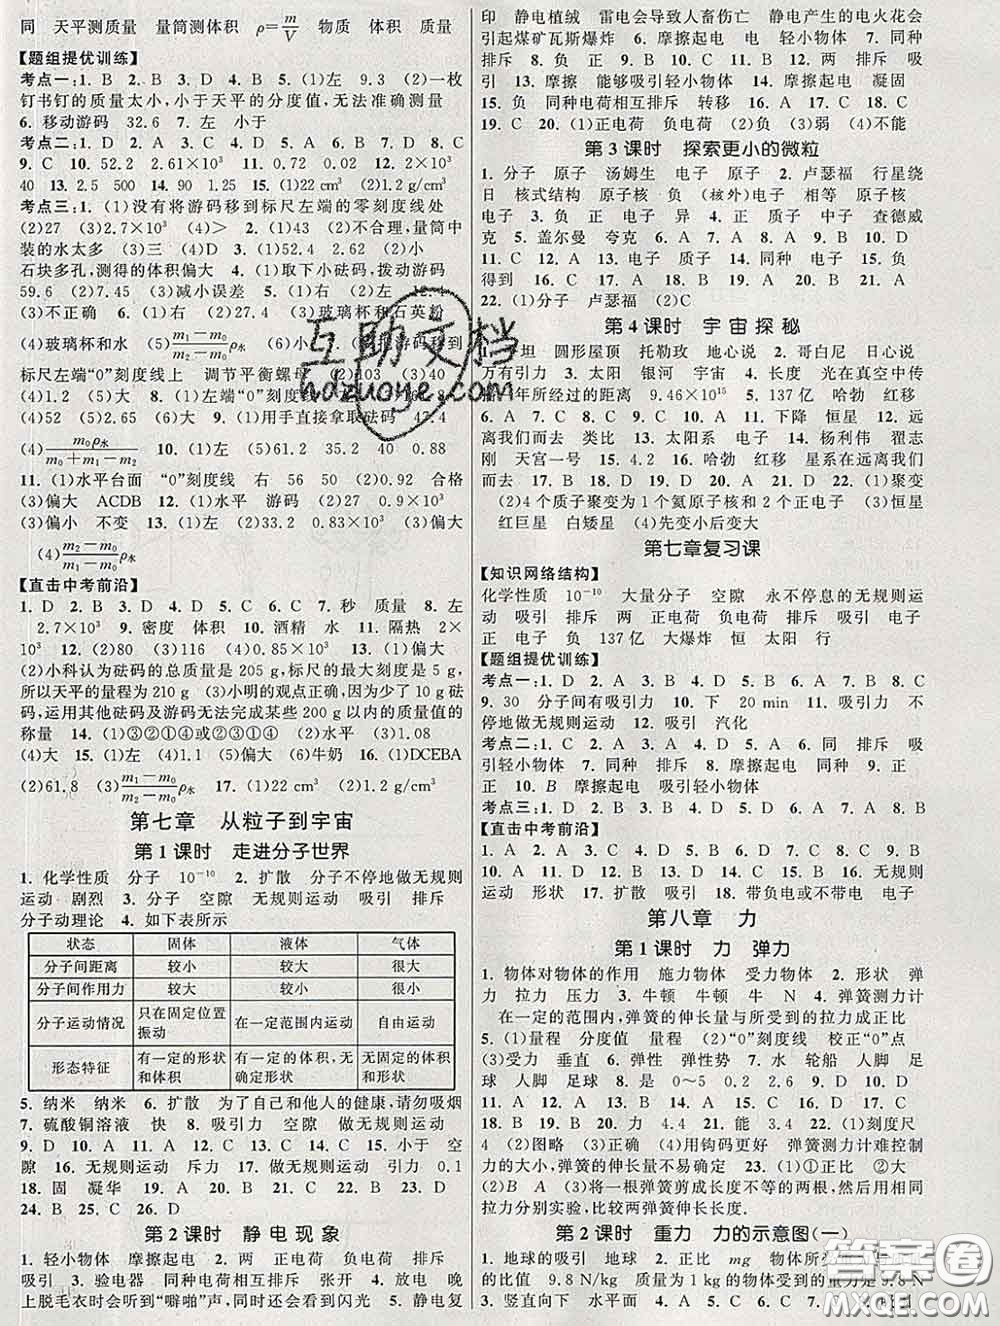 同 天平测质量 量筒测体积 ρ=m/V 物质 体积 质量
【题组提优训练】
考点一:1. B 2. B 3. B 4. D 5. (1)左 9.3 (2)一枚
钉书钉的质量太小,小于天平的分度值,无法准确测量
6. 移动游码 32.6 7. 左 小于
考点二:1. D 2. A 3. C 4. D 5. A 6. D 7. D 8. C
9. C 10. 52.2 2.61×10³ 11. 1.2×10³ 12. 2×10³
40 13. 2.5 500 14. 90 1.25 15. (1)22 cm³ (2)4 cm³
考点三:1. (1)没有将游码移到标尺左端的零刻度线处
(2)27 (3)2.7×10³ (4)> 2. (1)43 (2)不合理,量筒中
装的水太多 (3)三 (4)D 3. (1)52.4 2.62 (2)小
石块多孔,测得的体积偏大 4. (1)取下小砝码,拨动游码
59.6 (2)7.94 (3)减小误差 5. (1)右 (2)左 12.4
(3)不正确 6. (1)右 (2)27.4 (3)玻璃杯和石英粉
(4)玻璃杯和水 (5)
标尺左端“0”刻度线上 调节平衡螺母 (2)103 (3)40
(4)1.2 (5)大 8. (1)左端“0”刻度线
(4)52 (5)2.65 (6)大 9. (1)用手直接拿取砝码 47.4
(4)m₀ρ水/(m₀+m₁−m₂) 10. (1)左 (5)61.2 35.2 40 0.88
11. (1)水平台面 “0”刻度线 右 56 50 (2)0.92 合格
(3)偏大 ACDB 12. (1)水平 游码 (2)32 0.8×10³
(3)偏小 不变 13. (1)左 (2)33.2 0.83×10³ (3)偏大
(4)(m₂−m₀)/(m₁−m₀)ρ水
【直击中考前沿】
1. D 2. B 3. D 4. C 5. B 6. C 7. 秒 质量 8. 左
2.7×10³ 9. 密度 体积 10. 酒精 水 11. 隔热 2×
10³ 12. (2)80 (3)116 (4)0.85×10³ 13. (1)偏大
(2)小科认为砝码的总质量是 205 g,标尺的最大刻度是 5 g,
所以天平的量程为 210 g (3)小明的观点正确,因为少了 10 g 砝
码,运用其他砝码及游码无法完成某些 200 g 以内的质量值的
称量 14. (1)③②①④或②③①④ (2)水平 (3)1.08
(4)大 15. (1)左 (4)1.1 (5)偏大 (6)牛奶 16. (1)DCEBA
(2)61.8 (3)(m₁−m₀)/(m₂−m₀)ρ水 17. (1)22 cm³ (2)4 cm³
第七章 从粒子到宇宙
第1课时 走进分子世界
1. 化学性质 分子 10⁻¹⁰ 2. 扩散 分子不停地做无规则
运动 剧烈 3. 分子 空隙 无规则运动 吸引 排斥
分子动理论 4. 如下表所示
状态 固体 液体 气体
分子间距离 较小 较大 很大
分子间作用力 较大 较大 很小
分子运动情况 只在固定位置振动 在一定范围内运动 自由运动
形态特征 有一定的形状和体积 有一定的体积,无确定形状 无固定的体积和形状
5. 纳米 纳米 6. 扩散 为了自己和他人的健康,请勿吸烟
7. 硫酸铜溶液 快 8. 吸引力 空隙 做无规则运动
9. D 10. A 11. D 12. B 13. C 14. C 15. 小于 空
隙 16. 无规则运动 斥力 17. 做无规则运动 引力 0.1
18. 固 凝华 19. A 20. D 21. A 22. B 23. D
24. B 25. C 26. D
第2课时 静电现象
1. 轻小物体 摩擦起电 2. 两 正电荷 负电荷 排斥
吸引 3. 验电器 同种电荷相互排斥 张开 4. 放电 晚
上脱毛衣时会听到“噼啪”声,同时还会看到闪光 5. 静电复
印 静电植绒 雷电会导致人畜伤亡 静电产生的电火花会
引起煤矿瓦斯爆炸 6. 摩擦起电 电 轻小物体 7. 同种
排斥 8. 负 正 9. B 10. C 11. B 12. 两 排斥 吸
引 13. 摩擦 能够吸引轻小物体 14. 摩擦起电 凝固
15. 负 同种电荷相互排斥 转移 16. C 17. C 18. C
19. C 20. (1)正电荷 负电荷 (2)负 (3)弱 (4)不能
第3课时 探索更小的微粒
1. 分子 原子 汤姆生 电子 原子 2. 卢瑟福 行星绕
日 核式结构 原子核 负 (核外)电子 相等 原子核
电子 3. 负 电子 异 4. 正 质子 中子 查德威
克 5. 盖尔曼 夸克 6. A 7. A 8. A 9. D 10. D
11. C 12. A 13. 电子 质子 14. 同种 电子 15. 负
得到 16. C 17. A 18. B 19. A 20. B 21. D
22. (1)分子 卢瑟福 (2)C
第4课时 宇宙探秘
坦 圆形屋顶 托勒玫 地心说 2. 哥白尼 日心说
万有引力 3. 太阳 银河 宇宙 4. 长度 光在真空中传
年所经过的距离 9.46×10¹⁵ 5. 137亿 哈勃 红移
6. A 7. C 8. C 9. C 10. A 11. 下降 恒星 12. 远
离我们而去 类比 13. 太阳系 电子 14. 杨利伟 翟志
刚 天宫一号 15. 引力 16. 哈勃 红移 星系在远离我
们而去 17. D 18. B 19. A 20. A 21. D 22. (1)聚变
(2)4个质子聚变为1个氦原子核和2个正电子 (3)恒星
红巨星 白矮星 (4)先变小后变大
第七章复习课
【知识网络结构】
化学性质 10⁻¹⁰ 大量分子 空隙 永不停息的无规则运
动 吸引 排斥 两 正电荷 负电荷 吸引 排斥
正 电子 负 137亿 大爆炸 恒 太阳 行
【题组提优训练】
考点一:1. D 2. D 3. C 4. C 5. C 6. A 7. B 8. C
9. 30 分子间有吸引力 10. 下 20 min 11. 吸引力 不
停地做无规则运动 12. 吸引 汽化
考点二:1. C 2. C 3. A 4. D 5. A 6. 同 排斥 吸
引轻小物体 7. 摩擦起电 吸引 排斥 8. 负 9. 正
正 10. B 摩擦起电 吸引轻小物体
考点三:1. D 2. C 3. D 4. B 5. A 6. D 7. A 8. B
【直击中考前沿】
1. A 2. A 3. C 4. D 5. D 6. A 7. B 8. C 9. B
10. A 11. D 12. D 13. D 14. D 15. A 16. 无规则
运动 形状 17. 扩散 吸引 18. 带负电或不带电 电子
第八章 力
第1课时 力 弹力
1. 物体对物体的作用 施力物体 受力物体 2. 形状 弹
力 拉力 压力 3. 牛顿 牛顿 牛 N 4. 弹簧测力计
在一定的范围内,弹簧的伸长量与所受到的拉力成正比
5. (1)量程 分度值 量程 (2)“0”刻度线 校正“0”点
(3)受力 垂直 6. 弹性 弹性势 7. 水 轮船 人脚 足
球 人脚 足球 8. 是 0～5 0.2 2.6 9. D 10. D
11. D 12. A 13. D 14. C 15. A 16. D 17. C
18. B 19. B 20. 力 4.4 21. 能 2 22. (1)刻度尺
(2)图略 (3)正确 (4)用钩码更好 弹簧测力计难控制
力的大小,弹簧的伸长量不易确定 23. (1)①正比 ②大
(2)B A (3)将一根弹簧剪成长度不等的两根,然后用相同的
拉力分别实验,比较两弹簧伸长长度.
第2课时 重力 力的示意图(一)
1. 地球的吸引 地球 2. 正比 mg 物体所受
的比值 9.8 N/kg 质量为1 kg的物体受到的重力是9.8 N
3. 竖直向下 水平面
互助文档
hdzuoye.com
答案圈
MXQE.COM